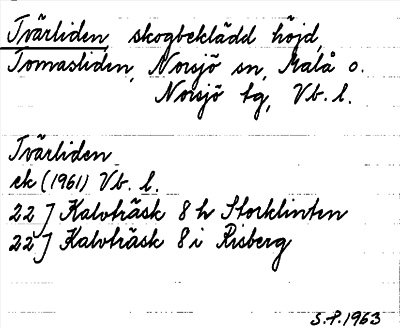 Tvärliden, skogbeklädd höjd,
Tomasliden, Norsjö sn, Malå o.
Norsjö tg, Vb. l.
Tvärliden
ek (1961) Vb. l.
22 J Kalvträsk 8 h Storklinten
22 J Kalvträsk 8 i Risberg
S.P. 1963